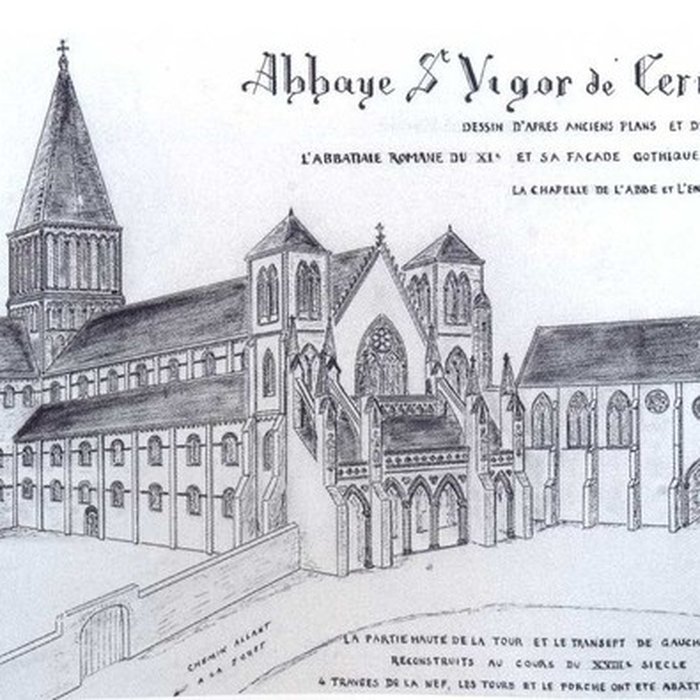 Abbaye St Vigor de Ceri
DESSIN D'APRES ANCIENS PLANS ET D
L'ABBATIALE ROMANE DU XIe ET SA FACADE GOTHIQUE
LA CHAPELLE DE L'ABBE ET L'EN
CHEMIN ALLANT
A LA FORET
LA PARTIE HAUTE DE LA TOUR ET LE TRANSEPT DE GAUCH
RECONSTRUITS AU COURS DU XVIIIe SIECLE
4 TRAVEES DE LA NEF, LES TOURS ET LE PORCHE ONT ETE ABAT